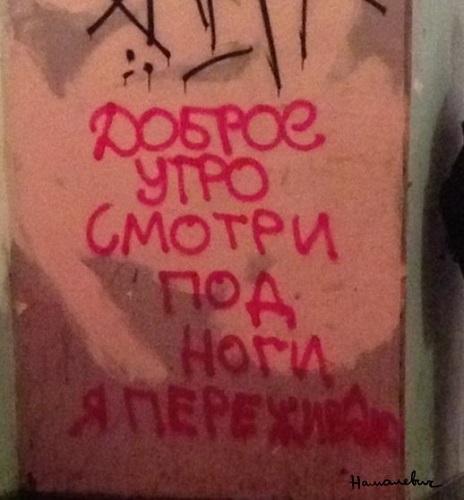 ДОБРОЕ
УТРО
СМОТРИ
ПОД
НОГИ
Я ПЕРЕЖИВАЮ